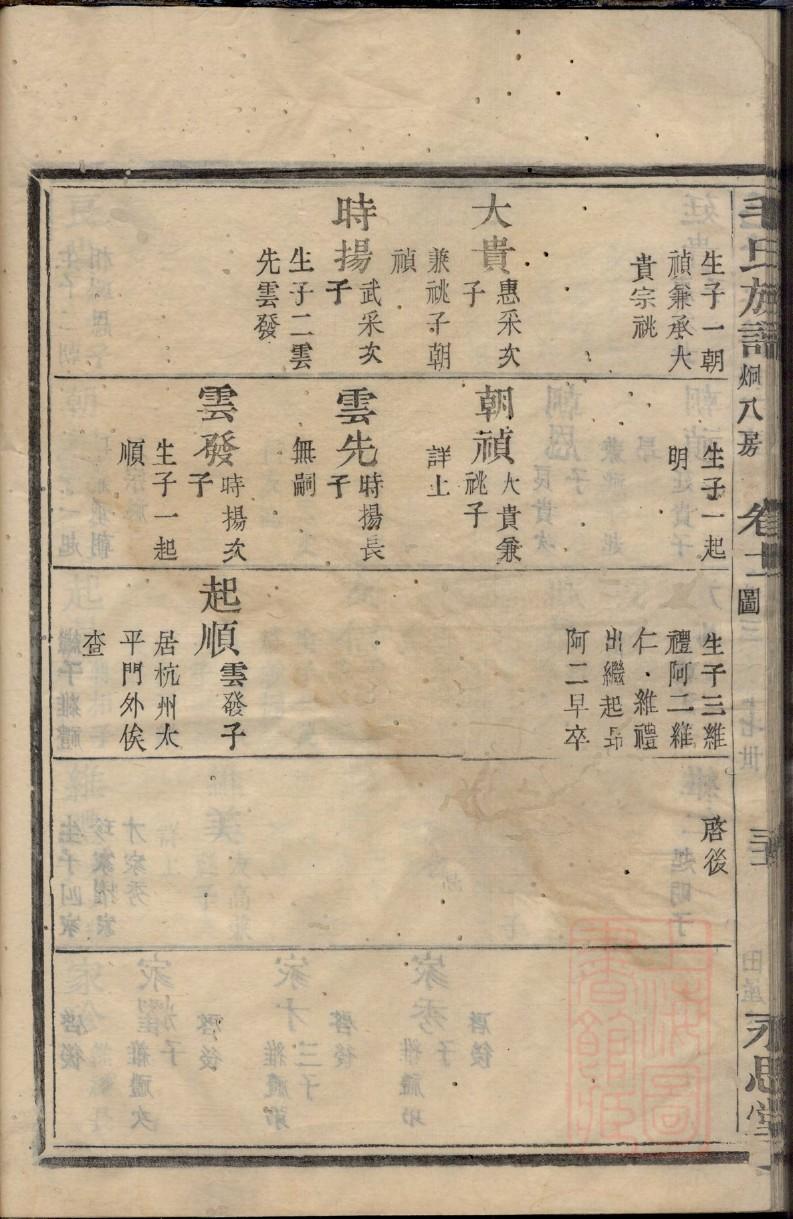 毛氏族譜
炯八房
卷十一
圖
永思堂
生子一朝
禎兼承大
貴宗祧
大貴
惠采次
子
兼祧子朝
禎
時揚
武采次
子
生子二雲
先雲發
生子一起
明
朝禎
大貴兼
祧子
詳上
雲先
時揚長
子
無嗣
雲發
時揚次
子
生子一起
順
生子三維
禮阿二維
仁維禮
出繼起昻
阿二早卒
起順
雲發子
居杭州太
平門外俟
查
啓後
上海圖
書館藏